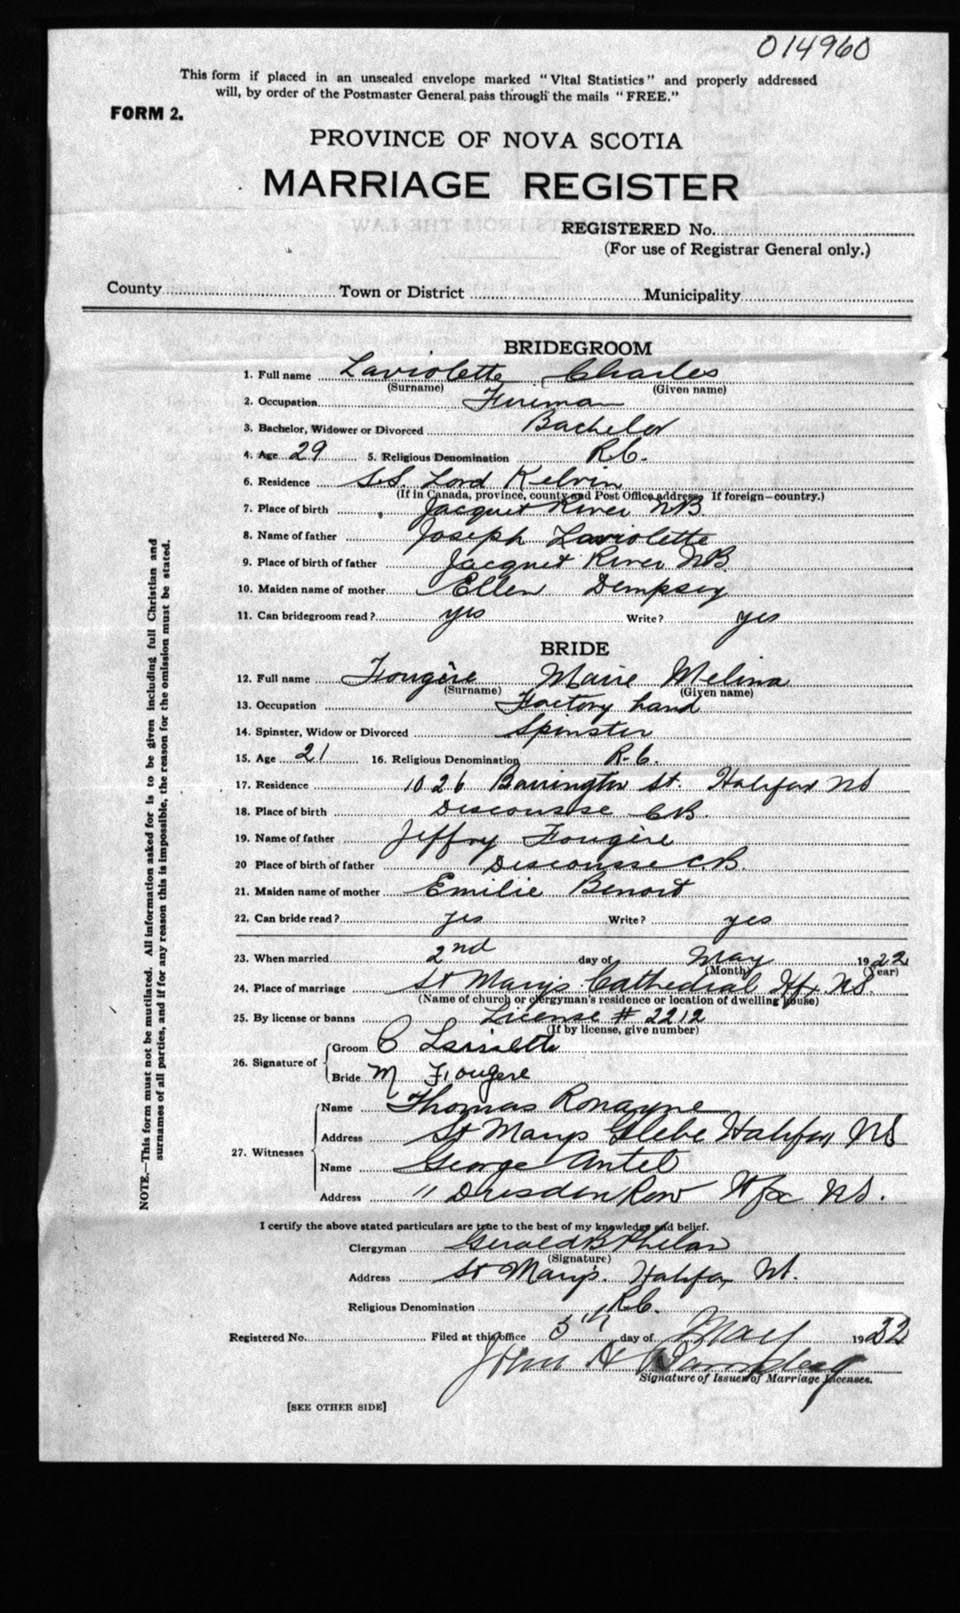 014960
This form if placed in an unsealed envelope marked "Vital Statistics" and properly addressed
will, by order of the Postmaster General, pass through the mails "FREE."
FORM 2.
PROVINCE OF NOVA SCOTIA
MARRIAGE REGISTER
REGISTERED No.
(For use of Registrar General only.)
County Town or District Municipality
BRIDEGROOM
1. Full name Laviolette Charles
(Surname) (Given name)
2. Occupation Fireman
3. Bachelor, Widower or Divorced Bachelor
4. Age 29 5. Religious Denomination R.C.
6. Residence S.S. Lord Kelvin
(If in Canada, province, county and Post Office address. If foreign—country.)
7. Place of birth Jacquet River NB
8. Name of father Joseph Laviolette
9. Place of birth of father Jacquet River NB
10. Maiden name of mother Ellen Dempsey
11. Can bridegroom read? yes Write? yes
BRIDE
12. Full name Fougère Marie Melina
(Surname) (Given name)
13. Occupation Factory hand
14. Spinster, Widow or Divorced Spinster
15. Age 21 16. Religious Denomination R.C.
17. Residence 1026 Barrington St. Halifax NS
18. Place of birth Descousse CB.
19. Name of father Jeffry Fougère
20 Place of birth of father Descousse C.B.
21. Maiden name of mother Emilie Benoit
22. Can bride read? yes Write? yes
23. When married 2nd day of May 1922
(Month) (Year)
24. Place of marriage St Mary's Cathedral Hfx NS.
(Name of church or clergyman's residence or location of dwelling house)
25. By license or banns License # 2212
(If by license, give number)
26. Signature of Groom C Laviolette
Bride M Fougere
27. Witnesses Name Thomas Ronayne
Address St Marys Glebe Halifax NS
Name George Antel
Address 11 Dresden Row Hfx NS.
I certify the above stated particulars are true to the best of my knowledge and belief.
Clergyman Gerald B Phelan
(Signature)
Address St Mary's. Halifax NS.
Religious Denomination R.C.
Registered No. Filed at this office 5th day of May 1922
John A
Signature of Issuer of Marriage Licenses.
[SEE OTHER SIDE]
NOTE.—This form must not be mutilated. All information asked for is to be given including full Christian and
surnames of all parties, and if for any reason this is impossible, the reason for the omission must be stated.